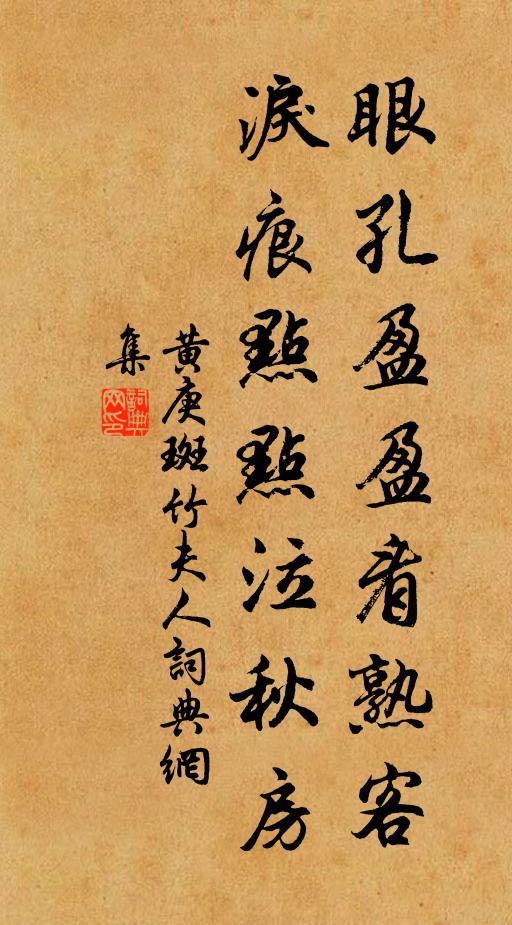 眼孔盈盈看熟客
淚痕點點泣秋房
黃庚斑竹夫人詞典網
集
詞典
网印